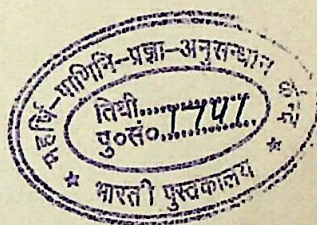 महर्षि-पाणिनि-प्रज्ञा-अनुसन्धान
तिथी..............
पु०सं० 1741
★ भारती पुस्तकालय ★